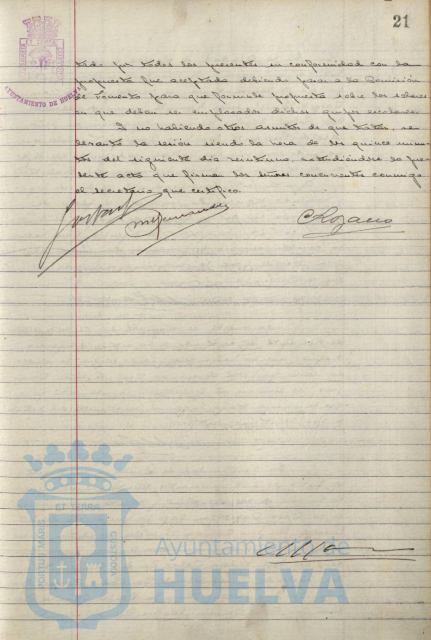 21
AYUNTAMIENTO DE HUELVA
tado por todos los presentes su conformidad con la
propuesta fue aceptada debiendo pasar a la Comisión
de Fomento para que formule propuesta sobre los solares
en que deban ser emplazados dichos grupos escolares.
Y no habiendo otros asuntos de que tratar, se
levanta la sesión siendo la hora de las quince minu-
tos del siguiente día veintiuno, extendiéndose la pre-
sente acta que firman los señores concurrentes conmigo
el secretario que certifico.
C Lozano
Ayuntamiento de
HUELVA